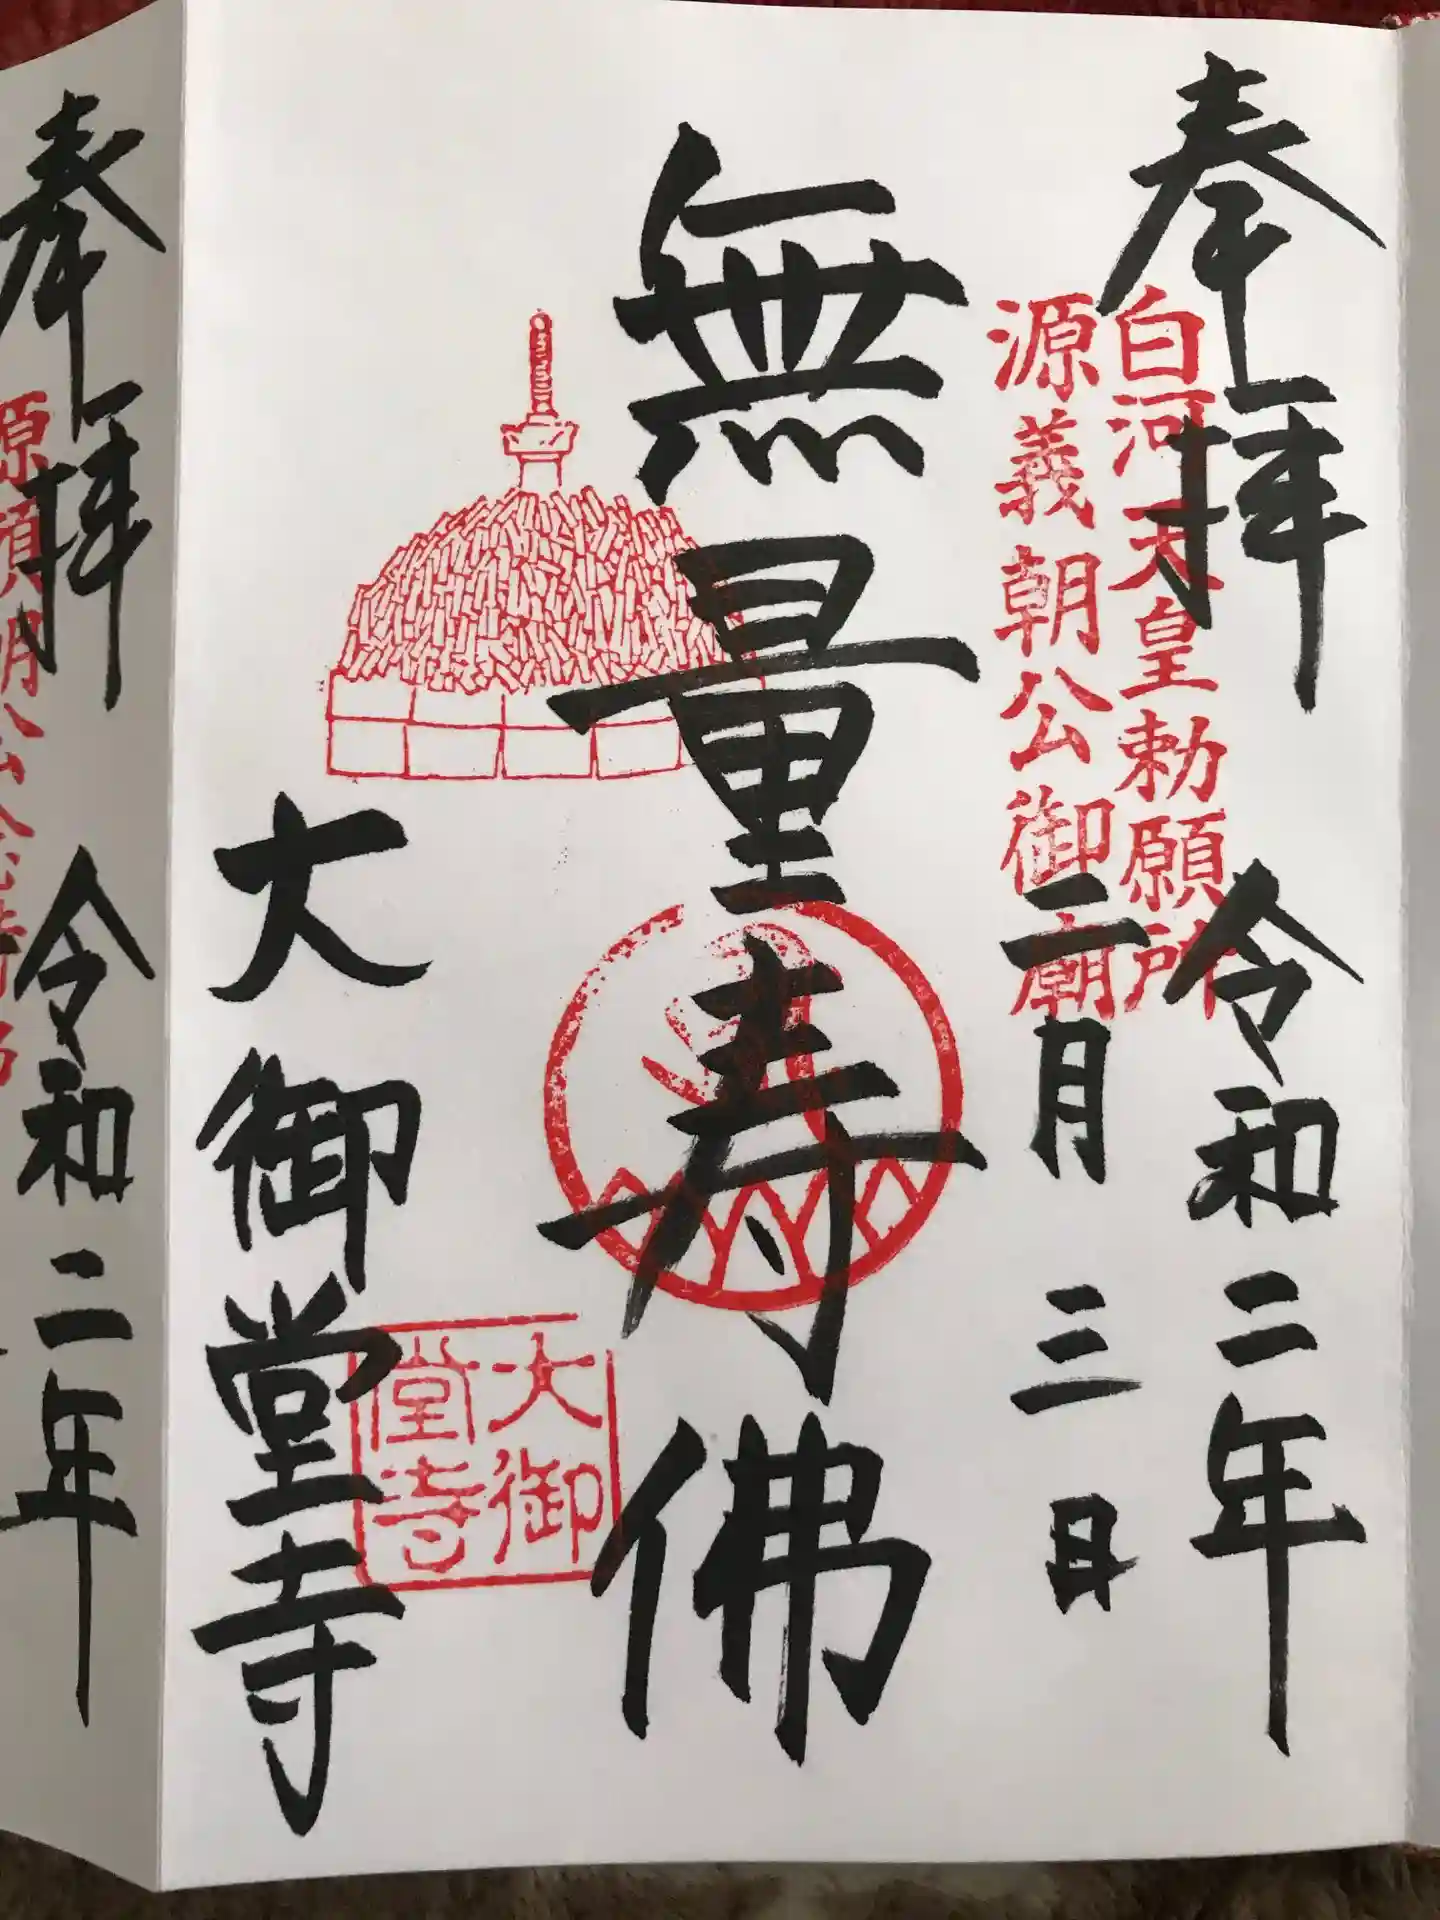 奉拝 令和二年
二月三日
白河天皇勅願所
源義朝公御廟
無量寿佛
大御堂寺
大御
堂寺
奉拝 令和二年